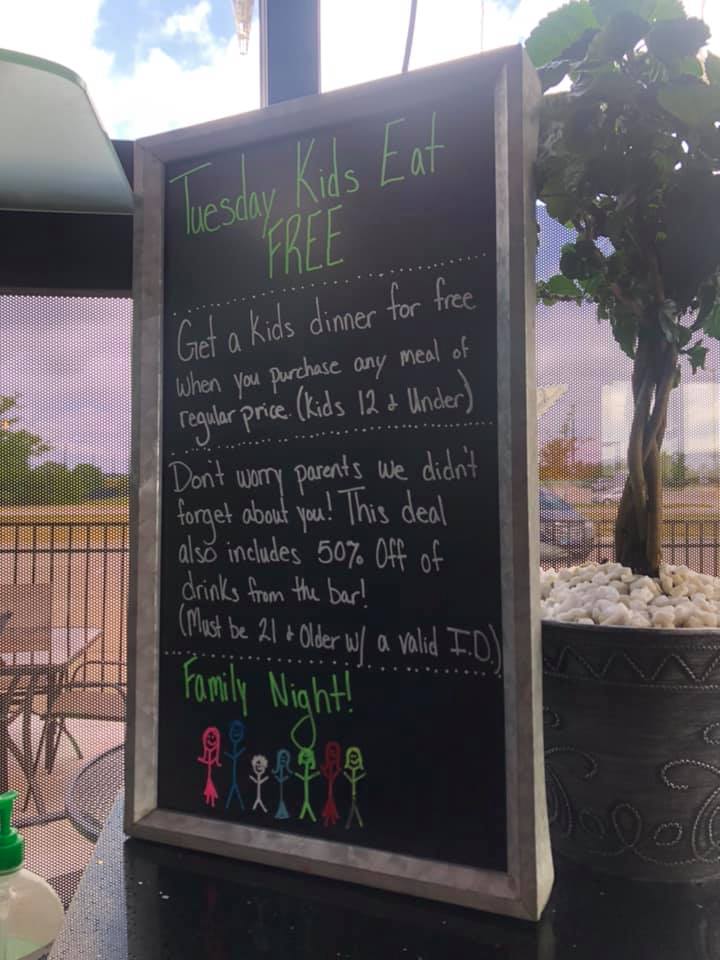 Tuesday Kids Eat
FREE
Get a Kids dinner for free
when you purchase any meal of
regular price. (Kids 12 & Under)
Don't worry parents we didn't
forget about you! This deal
also includes 50% Off of
drinks from the bar!
(Must be 21 & Older w/ a valid I.D.)
Family Night!